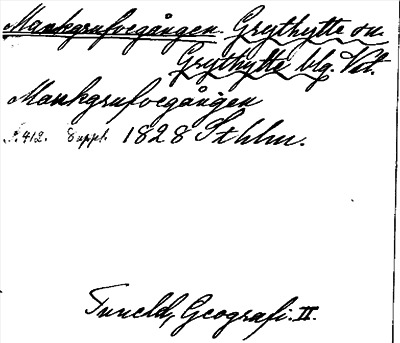 Markgrufvegången. Grythytte sn.
Grythytte blg. Vst.
Markgrufvegången
S. 412. 8 uppl. 1828 Sthlm.
Tuneld, Geografi. II.